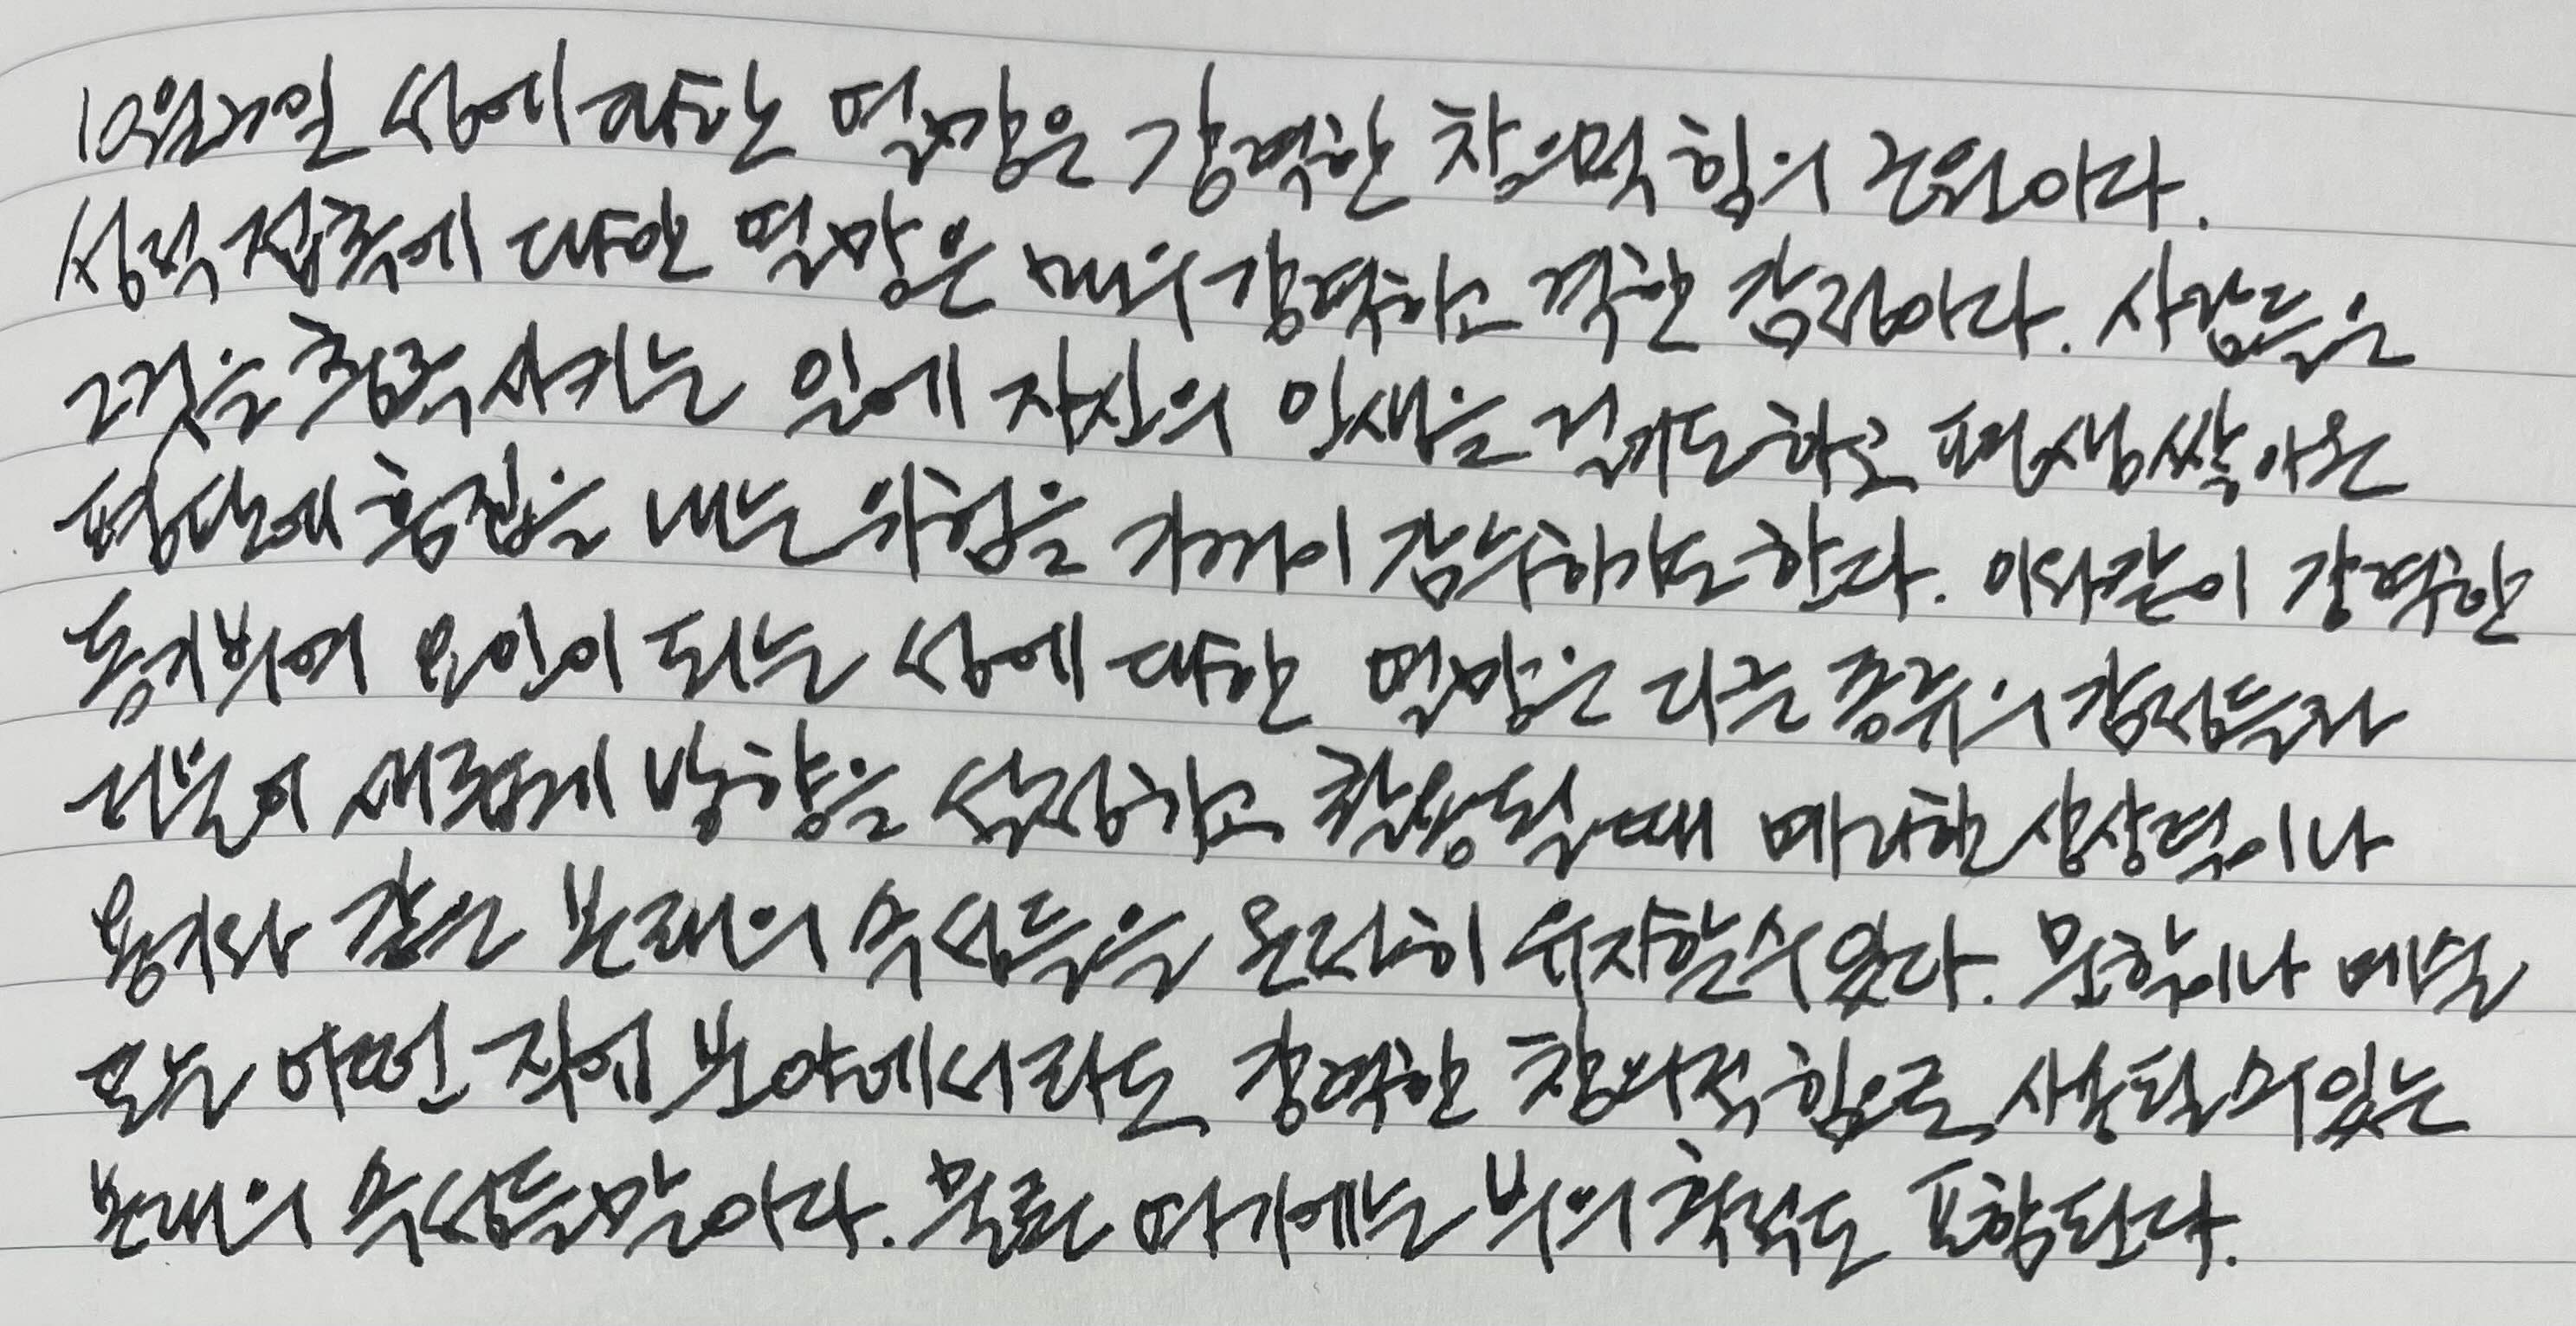 10월27일 성에 대한 열망은 강력한 창의적 힘의 근원이다.
성적 접촉에 대한 열망은 매우 강력하고 격한 감정이다. 사람들은
그것을 충족시키는 일에 자신의 인생을 걸기도하고 평생쌓아온
평판에 흠집을 내는 위험을 기꺼이 감수하기도 한다. 이와같이 강력한
동기부여 요인이 되는 성에 대한 열망은 다른 종류의 감정들과
더불어 새롭게 방향을 설정하고 활용될때 예리한 상상력이나
용기와 같은 본래의 속성들을 온전히 유지할수있다. 문학이나 예술
또는 어떤 직업 분야에서라도 강력한 창의적 힘으로 사용될수있는
본래의 속성들말이다. 물론 여기에는 부의 축적도 포함된다.